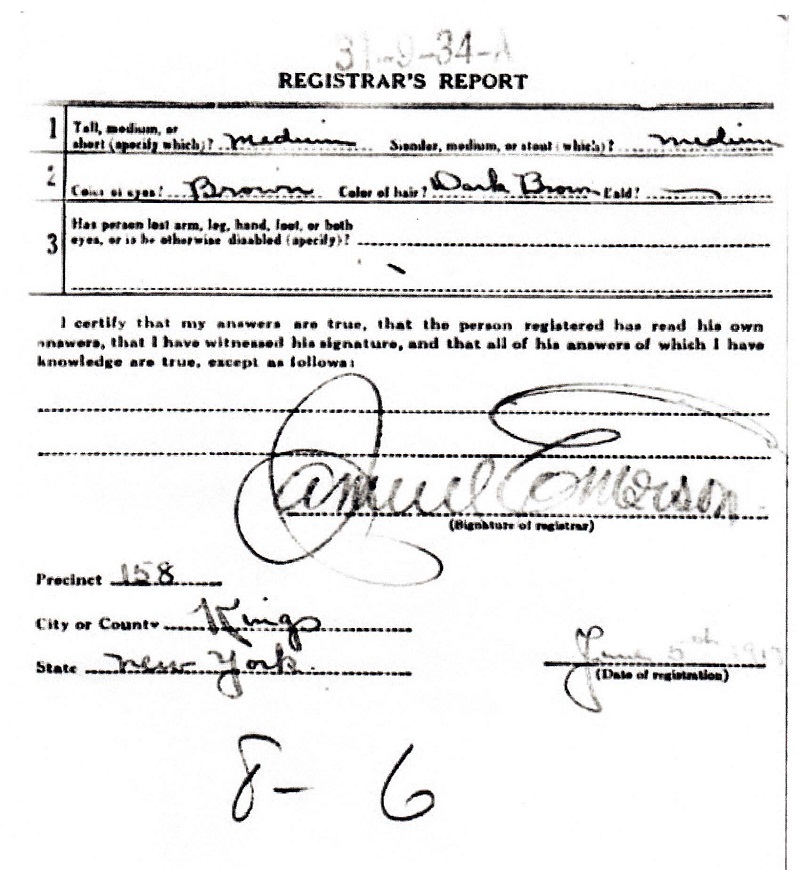 31-9-34-A
REGISTRAR'S REPORT
1 Tall, medium, or short (specify which)? medium Slender, medium, or stout (which)? medium
2 Color of eyes? Brown Color of hair? Dark Brown Bald? —
3 Has person lost arm, leg, hand, foot, or both
eyes, or is he otherwise disabled (specify)?
I certify that my answers are true, that the person registered has read his own
answers, that I have witnessed his signature, and that all of his answers of which I have
knowledge are true, except as follows:
Samuel Emerson
(Signature of registrar)
Precinct 158
City or County Kings
State New York
June 5th 1917
(Date of registration)
8- 6